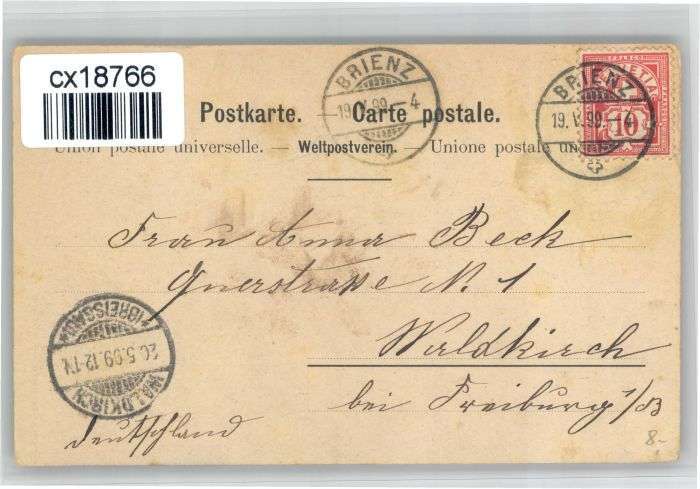 cx18766
BRIENZ
19. V. 99. – 4
FRANCO
HELVETIA
10
BRIENZ
19. V. 99. – 4
Postkarte. – Carte postale.
Union postale universelle. – Weltpostverein. – Unione postale
Frau Anna Beck
Querstrasse N. 1
Waldkirch
bei Freiburg i/B
Deutschland
*(BREISGAU)*
20.5.99.12-1N.
WALDKIRCH
8-